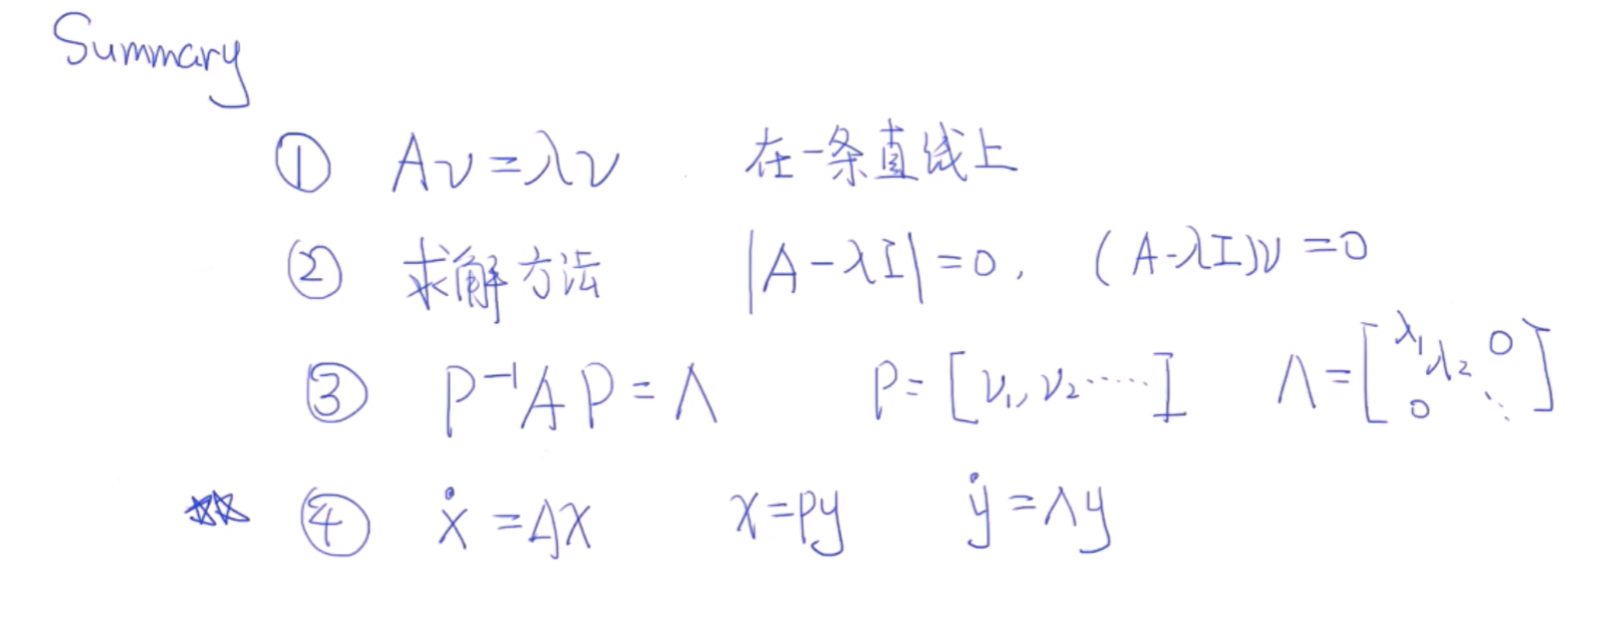 Summary
① Aν=λν 在一条直线上
② 求解方法 |A-λI|=0, (A-λI)ν=0
③ P⁻¹AP=Λ P=[ν₁,ν₂……] Λ=[λ₁ λ₂ 0 0 ⋱]
☆☆ ④ ẋ=Ax x=Py ẏ=Λy